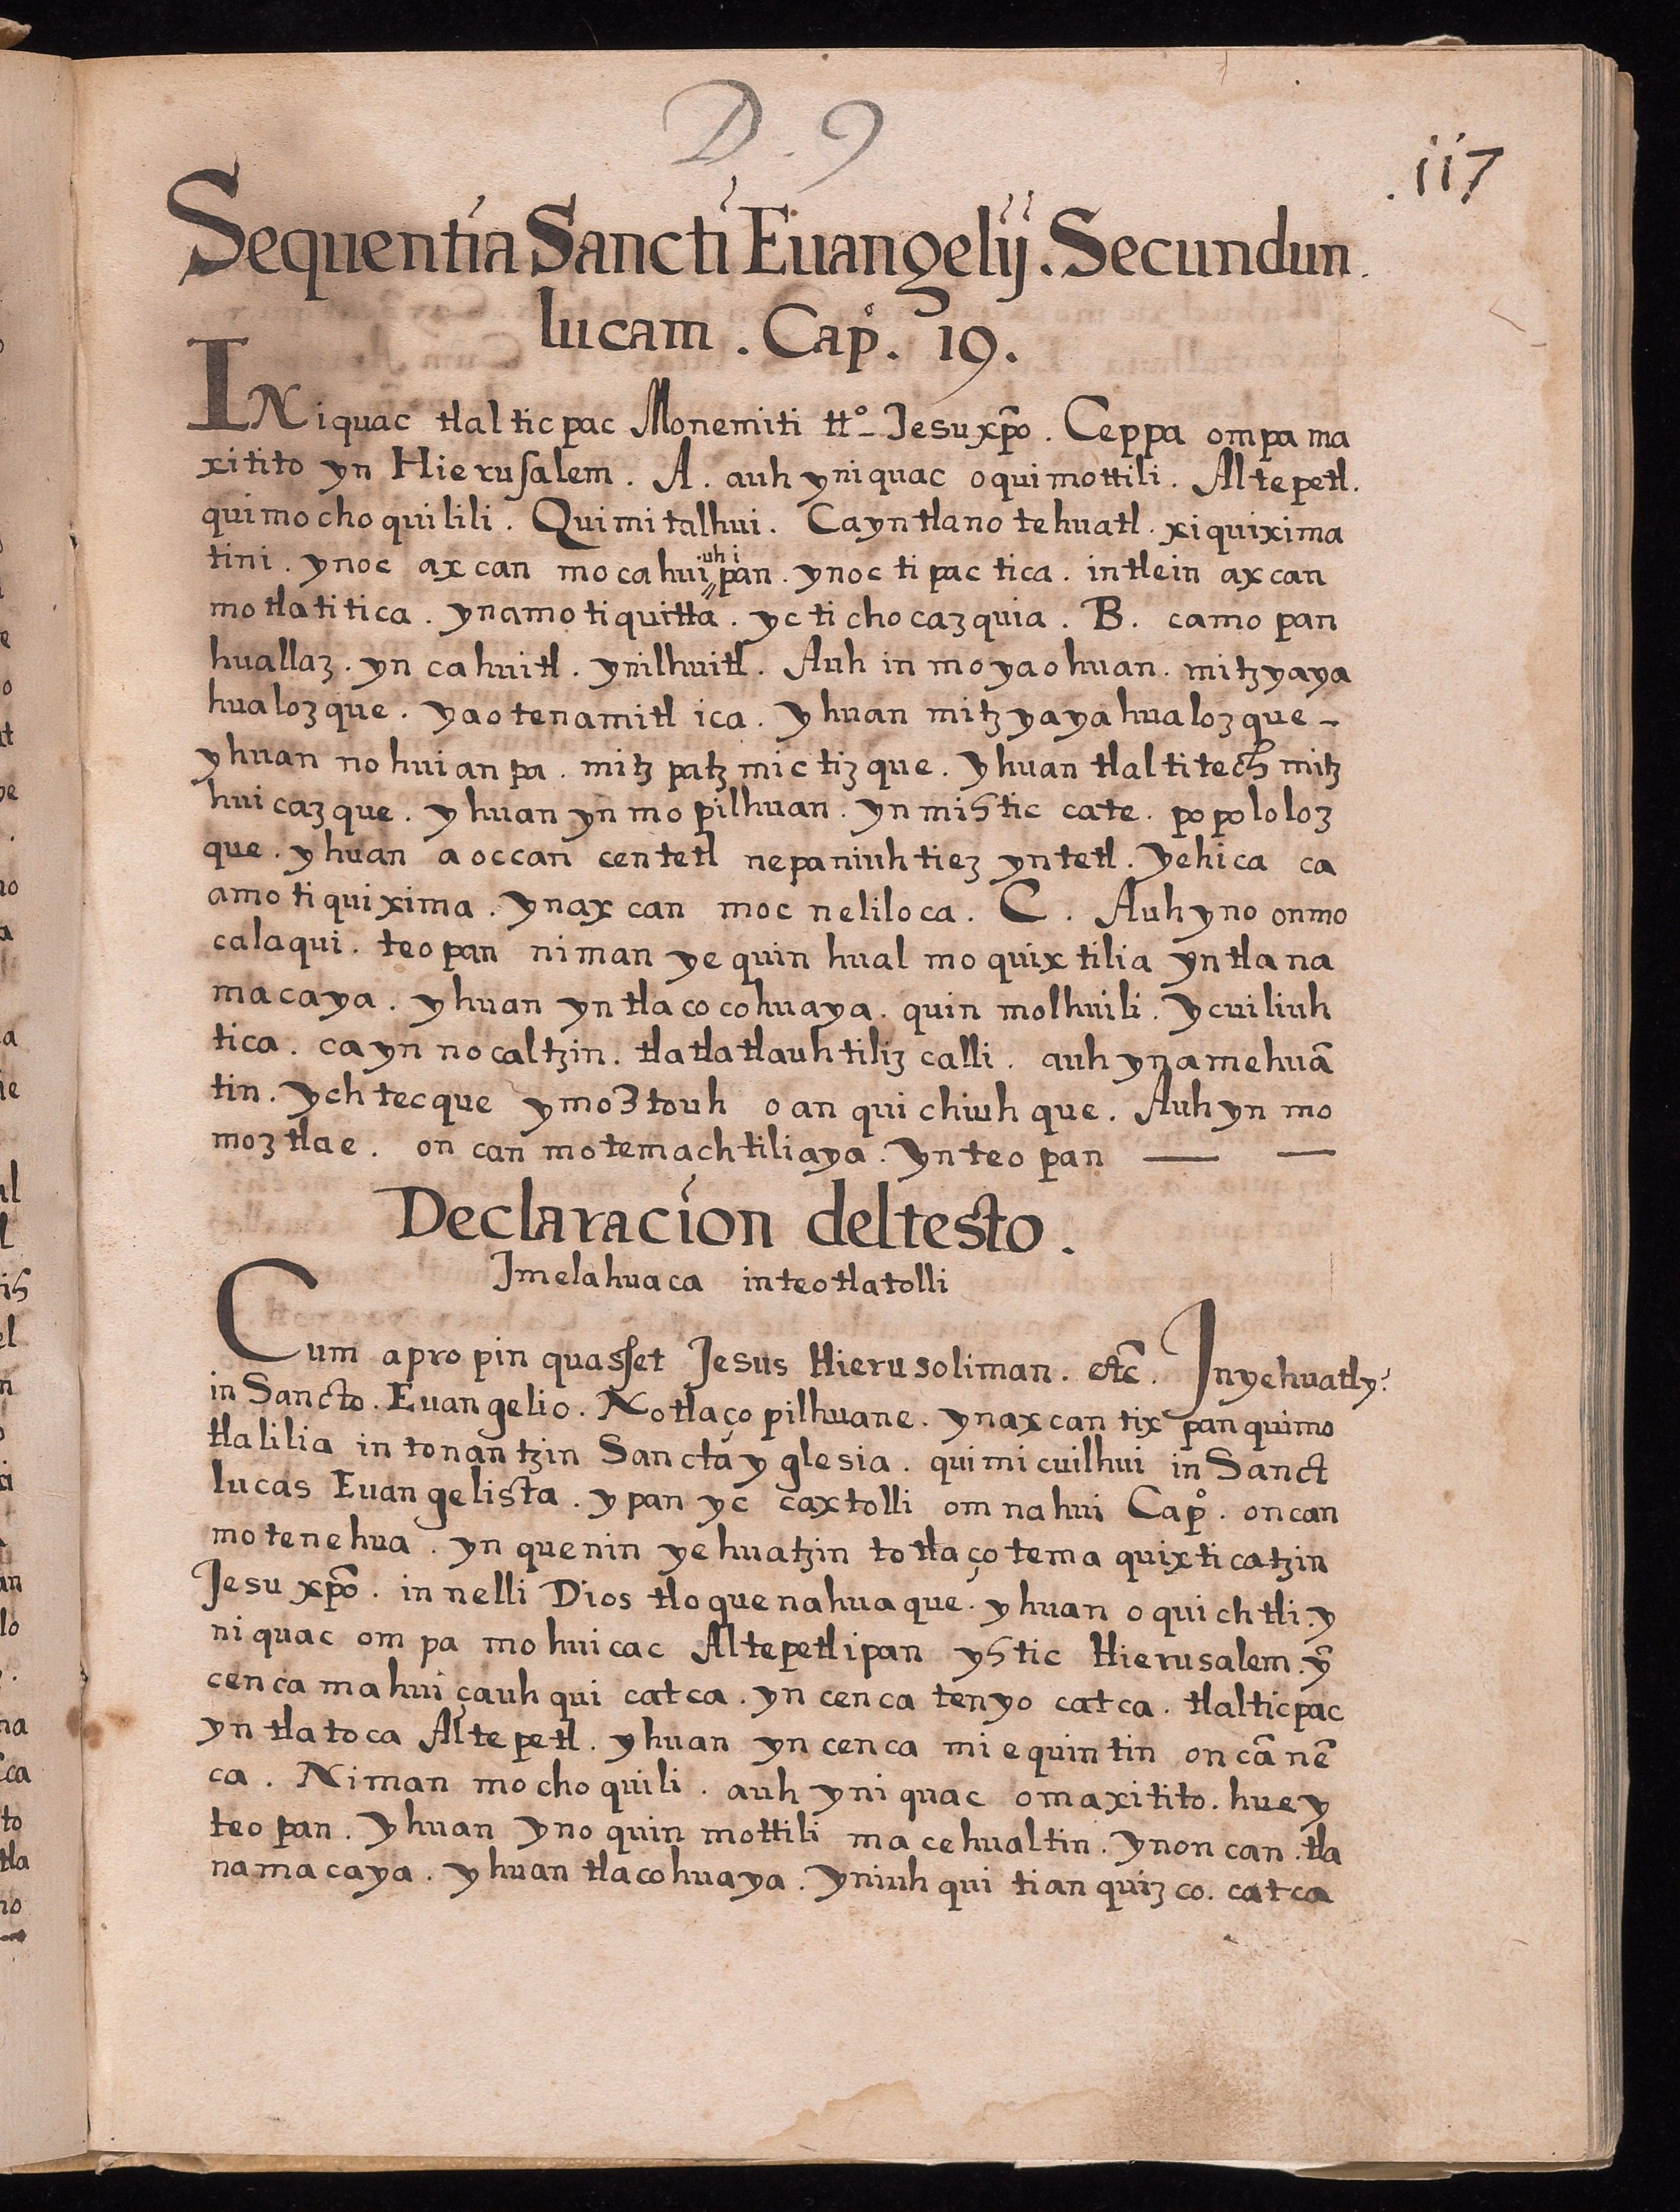 D. 9
.117
Sequentia Sancti Euangelij. Secundun
lucam. Cap̊. 19.
IN iquac tlalticpac Monemiti tt.º Jesu xp̄o. Ceppa ompa ma
xitito yn Hieruſalem. A. auh yniquac oquimottili. Altepetl.
quimochoquilili. Quimitalhui. Cayntlano tehuatl. xiquixima
tini. ynoc axcan mocahui uh ipan. ynoc tipactica. intlein axcan
motlatitica. ynamo tiquitta. yc tichocazquia. B. camo pan
huallaz. yn cahuitl. ynilhuitl. Auh in moyaohuan. mitzyaya
hualozque. yaotenamitl ica. yhuan mitzyayahualozque -
yhuan nohuianpa. mitzpatzmictizque. yhuan tlaltitech mitz
huicazque. yhuan yn mopilhuan. yn mihtic cate. popololoz
que. yhuan aoccan centetl nepaniuhtiez yntetl. yehica ca
amo tiquixima. ynaxcan moc neliloca. C. Auh yno onmo
calaqui. teopan niman ye quin hual moquixtilia yntlana
macaya. yhuan yn tlacocohuaya. quin molhuili. ycuiliuh
tica. cayn nocaltzin. tlatlatlauhtiliz calli. auh ynamehuā
tin. ychtecque ymoztouh oanquichiuhque. Auh yn mo
moztlae. oncan motemachtiliaya. yn teopan — —
Declaracion deltesto.
Jmelahuaca inteotlatolli
Cum apropinquasſet Jesus Hierusoliman. etc̄. Jnyehuatly
in Sancto. Euangelio. Notlaço pilhuane. ynaxcan tixpanquimo
tlalilia in tonantzin Sancta yglesia. quimicuilhui in Sanct
lucas Euangelista. ypan yc caxtolli omnahui Cap̊. oncan
motenehua. yn quenin yehuatzin totlaçotemaquixticatzin
Jesu xp̄o. in nelli Dios tloquenahuaque. yhuan oquichtli. y
niquac ompa mohuicac Altepetlipan yhtic Hierusalem. ȳ
cenca mahuiçauhqui catca. yn cenca tenyo catca. tlalticpac
yn tlatoca Altepetl. yhuan yn cenca miequintin oncā nē
ca. Niman mochoquili. auh yniquac omaxitito. huey
teopan. yhuan yno quin mottili macehualtin. ynoncan. tla
namacaya. yhuan tlacohuaya. yniuhqui tianquizco. catca